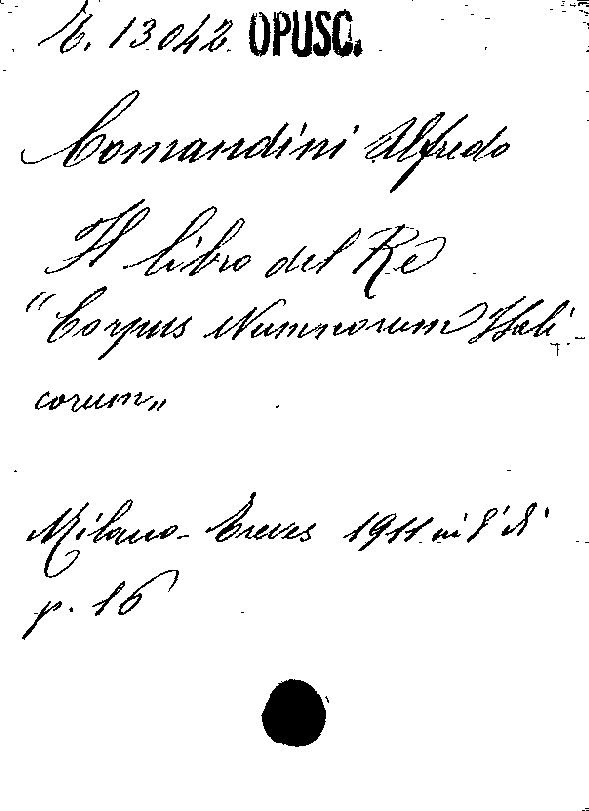 E. 13042 OPUSC.
Comandini Alfredo
Il libro del Re
"Corpus Nummorum Itali
corum„
Milano - Treves 1911 in 8° di
p. 16